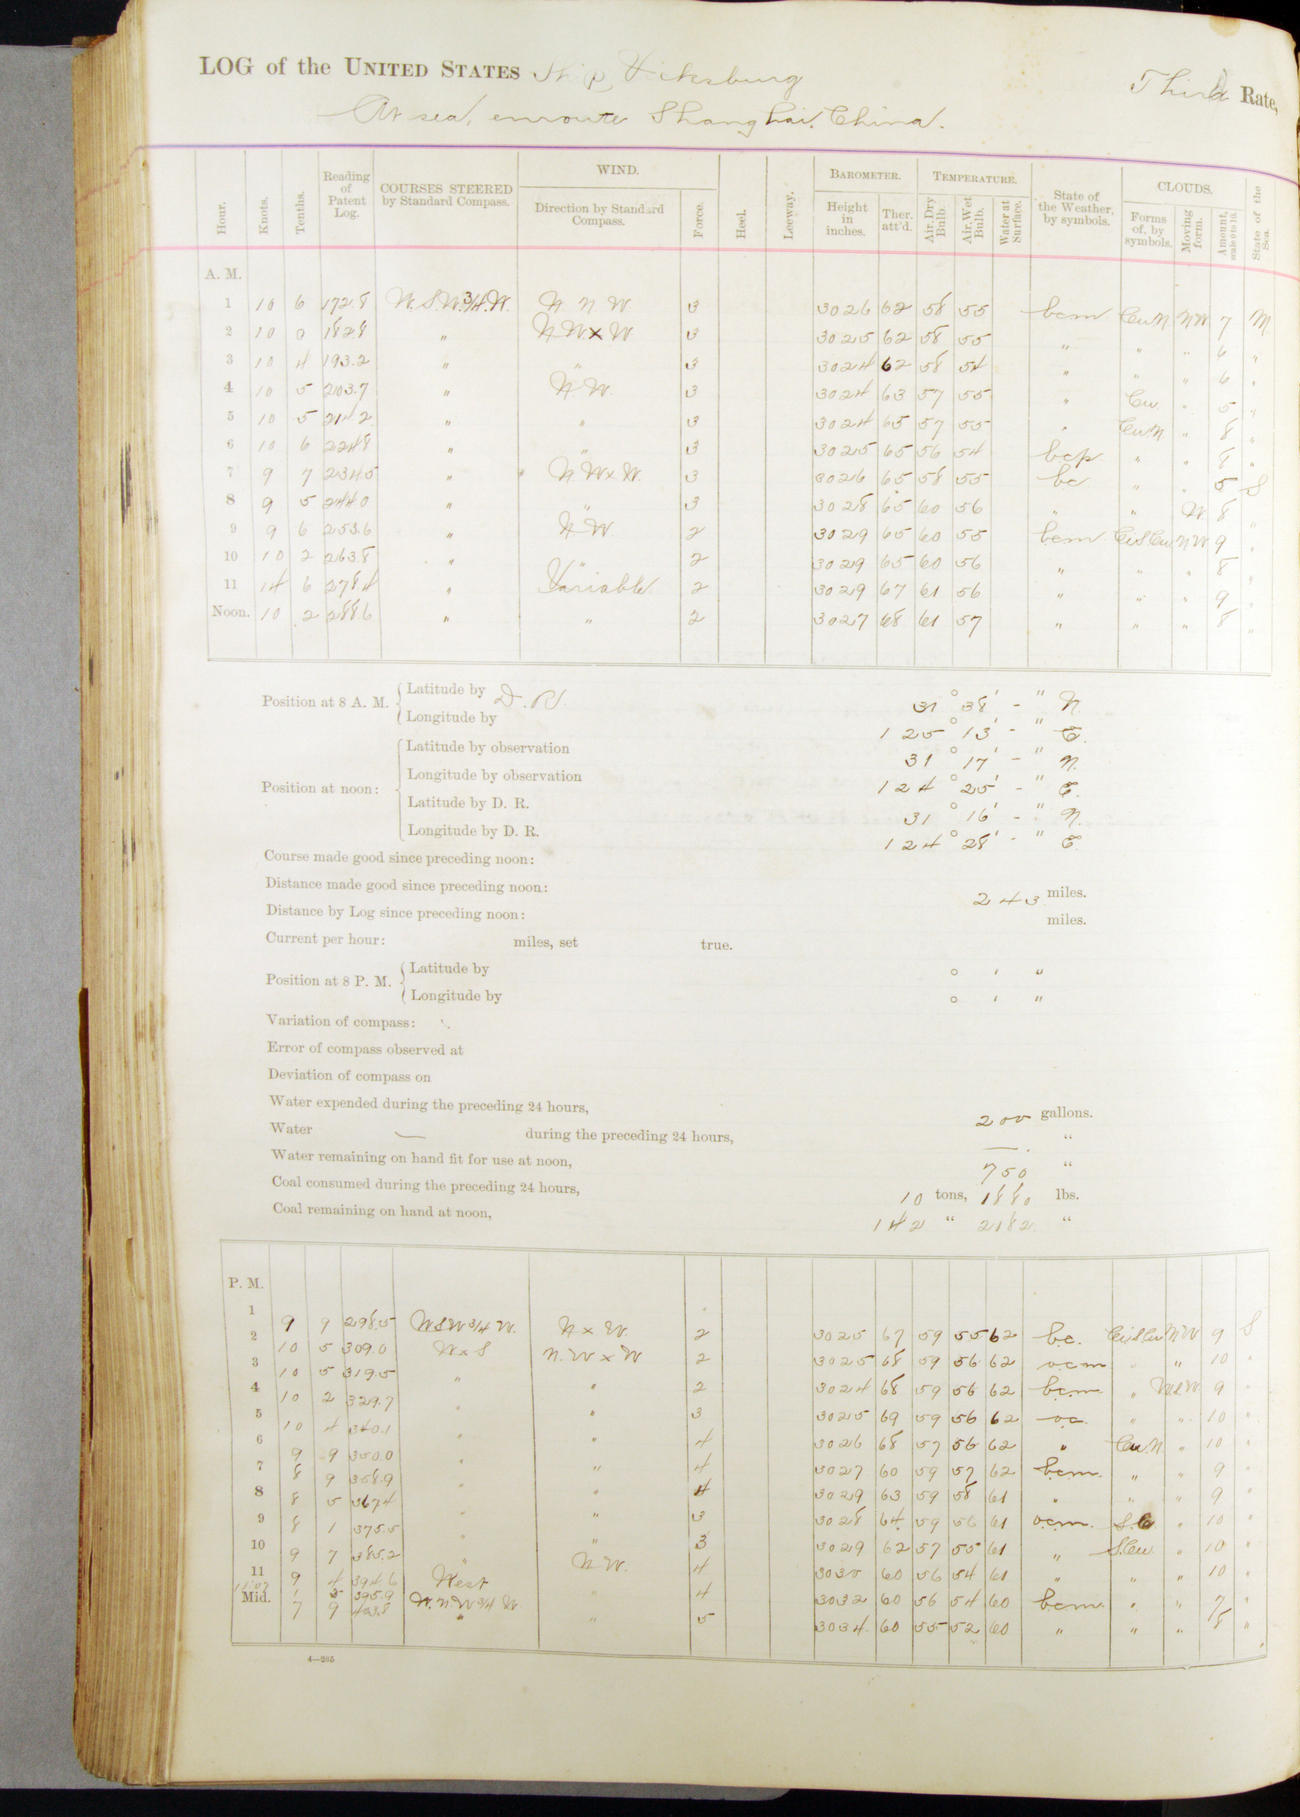 LOG of the UNITED STATES Ship Vicksburg Third Rate,
At sea, enroute Shanghai, China.
Hour. Knots. Tenths. Reading of Patent Log. COURSES STEERED by Standard Compass. WIND. Direction by Standard Compass. Force. Heel. Leeway. BAROMETER. Height in inches. Ther. att'd. TEMPERATURE. Air, Dry Bulb. Air, Wet Bulb. Water at Surface. State of the Weather, by symbols. CLOUDS. Forms of, by symbols. Moving form. Amount, scale 0 to 10. State of the Sea.
A. M.
1 10 6 172.8 W.S.W.3/4.W. N N W 3 3026 62 58 55 bcm CuN NW 7 M
2 10 0 182.8 " NW x W 3 3025 62 58 55 " " " 6 "
3 10 4 193.2 " " 3 3024 62 58 54 " " " 6 "
4 10 5 203.7 " N.W. 3 3024 63 57 55 " Cu. " 5 "
5 10 5 214.2 " " 3 3024 65 57 55 " CuN " 8 "
6 10 6 224.8 " " 3 3025 65 56 54 bcp " " 8 "
7 9 7 234.5 " N.W x W. 3 3026 65 58 55 bc " " 5 S
8 9 5 244.0 " " 3 3028 65 60 56 " " W. 8 "
9 9 6 253.6 " N.W. 2 3029 65 60 55 bcm CiSCu NW 9 "
10 10 2 263.8 " " 2 3029 65 60 56 " " " 8 "
11 14 6 278.4 " Variable 2 3029 67 61 56 " " " 9 "
Noon. 10 2 288.6 " " 2 3027 68 61 57 " " " 8 "
Position at 8 A. M. Latitude by D. R. 31 ° 38 ' - " N.
Longitude by 125 ° 13 ' - " E.
Position at noon: Latitude by observation 31 ° 17 ' - " N.
Longitude by observation 124 ° 25 ' - " E.
Latitude by D. R. 31 ° 16 ' - " N.
Longitude by D. R. 124 ° 28 ' - " E.
Course made good since preceding noon:
Distance made good since preceding noon: 243 miles.
Distance by Log since preceding noon: miles.
Current per hour: miles, set true.
Position at 8 P. M. Latitude by ° ' "
Longitude by ° ' "
Variation of compass:
Error of compass observed at
Deviation of compass on
Water expended during the preceding 24 hours, 200 gallons.
Water — during the preceding 24 hours, — "
Water remaining on hand fit for use at noon, 750 "
Coal consumed during the preceding 24 hours, 10 tons, 1880 lbs.
Coal remaining on hand at noon, 142 " 2182 "
P. M.
1 9 9 298.5 WSW 3/4 W. N x W. 2 3025 67 59 55 62 b.c. CiSCu NW 9 S
2 10 5 309.0 W x S N.W x W 2 3025 68 59 56 62 o.c.m " " 10 "
3 10 5 319.5 " " 2 3024 68 59 56 62 b.c.m. " WSW. 9 "
4 10 2 329.7 " " 3 3025 69 59 56 62 o.c. " " 10 "
5 10 4 340.1 " " 4 3026 68 57 56 62 " CuN " 10 "
6 9 9 350.0 " " 4 3027 60 59 57 62 b.c.m. " " 9 "
7 8 9 358.9 " " 4 3029 63 59 58 61 " " " 9 "
8 8 5 367.4 " " 3 3028 64 59 56 61 o.c.m. " 10 "
9 8 1 375.5 " " 3 3029 62 57 55 61 " S.Cu. " 10 "
10 9 7 385.2 " N.W. 4 3030 60 56 54 61 " " " 10 "
11 9 4 394.6 West " 4 3032 60 56 54 60 b.c.m. " " 7 "
11:07 1 3 395.9 W.N.W 3/4 W
Mid. 7 9 403.8 " " 5 3034 60 55 52 60 " " " 8 "
4—205